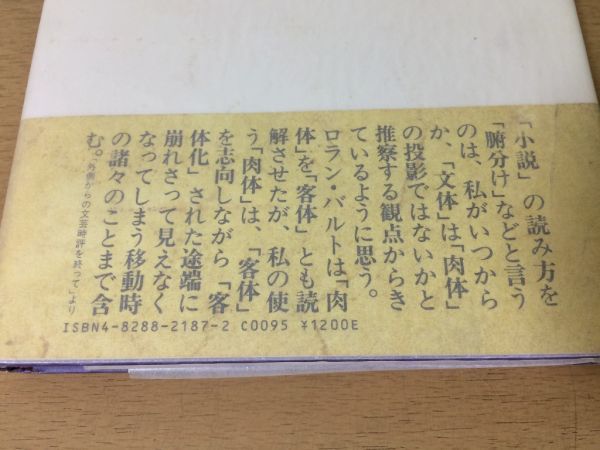 「小説」の読み方を
「腑分け」などと言う
のは、私がいつから
か、「文体」は「肉体」
の投影ではないかと
推察する観点からき
ているように思う。
ロラン・バルトは「肉
体」を「客体」とも読
解させたが、私の使
う「肉体」は、「客体」
を志向しながら「客
体化」された途端に
崩れさって見えなく
なってしまう移動時
の諸々のことまで含
む。「外側からの文芸時評を終って」より
ISBN4-8288-2187-2 C0095 ¥1200E